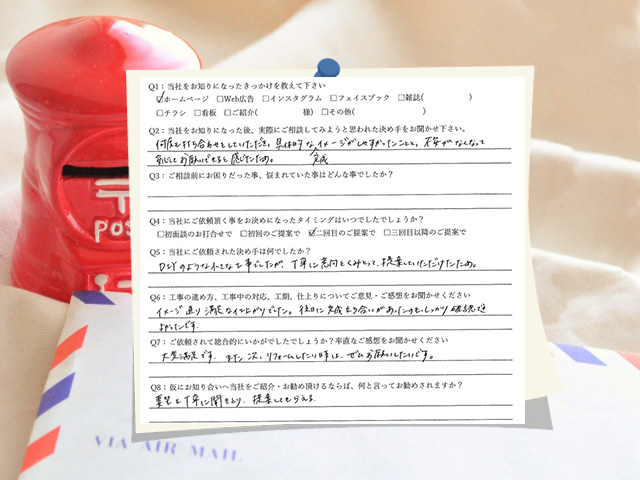 〒
POS
VIA AIR MAIL
Q1：当社をお知りになったきっかけを教えて下さい
☑ホームページ　□Web広告　□インスタグラム　□フェイスブック　□雑誌(　　　　)
□チラシ　□看板　□ご紹介(　　　　様)　□その他(　　　　)
Q2：当社をお知りになった後、実際にご相談してみようと思われた決め手をお聞かせ下さい。
何度も打ち合わせをしていただき、具体的な完成イメージがしやすかったことと、不安がなくなって
安心してお願いできると感じたため。
Q3：ご相談前にお困りだった事、悩まれていた事はどんな事でしたか？
Q4：当社にご依頼頂く事をお決めになったタイミングはいつでしたでしょうか？
□初面談のお打合せで　□初回のご提案で　☑二回目のご提案で　□三回目以降のご提案で
Q5：当社にご依頼された決め手は何でしたか？
DIYのような小さな工事でしたが、丁寧に意向をくみとって、提案していただけたため。
Q6：工事の進め方、工事中の対応、工期、仕上りについてご意見・ご感想をお聞かせください
イメージ通り満足な仕上がりでした。後日に完成立ち合いがあったのも、しっかり確認できて
よかったです。
Q7：ご依頼されて総合的にいかがでしたでしょうか？率直なご感想をお聞かせください
大変満足です。また次、リフォームしたい時は、ぜひお願いしたいです。
Q8：仮にお知り合いへ当社をご紹介・お勧め頂けるならば、何と言ってお勧めされますか？
要望を丁寧に聞きとり、提案してもらえる。